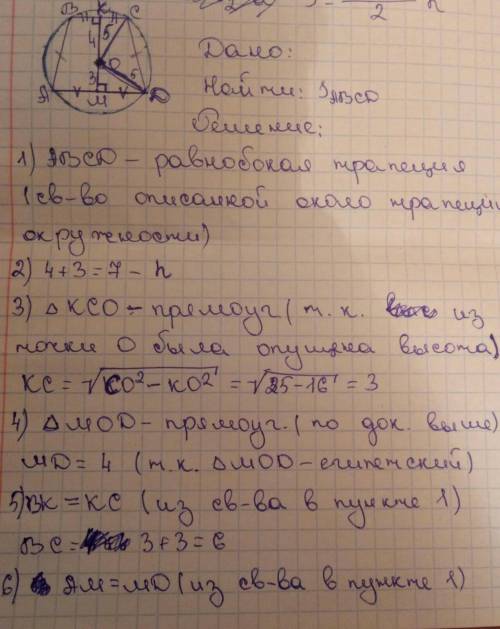 2
h
B K C
4 5
O
3 5
A M D
Дано:
Найти: SABCD
Решение:
1) ABCD – равнобокая трапеция
(св-во описанной около трапеции
окружности)
2) 4+3=7 – h
3) △KCO – прямоуг (т.к. из
точки O была опущена высота)
KC = √CO²−KO² = √25−16 = 3
4) △MOD – прямоуг. (по док. выше)
MD = 4 (т.к. △MOD – египетский)
5) BK = KC (из св-ва в пункте 1)
BC = 3+3=6
6) AM=MD (из св-ва в пункте 1)